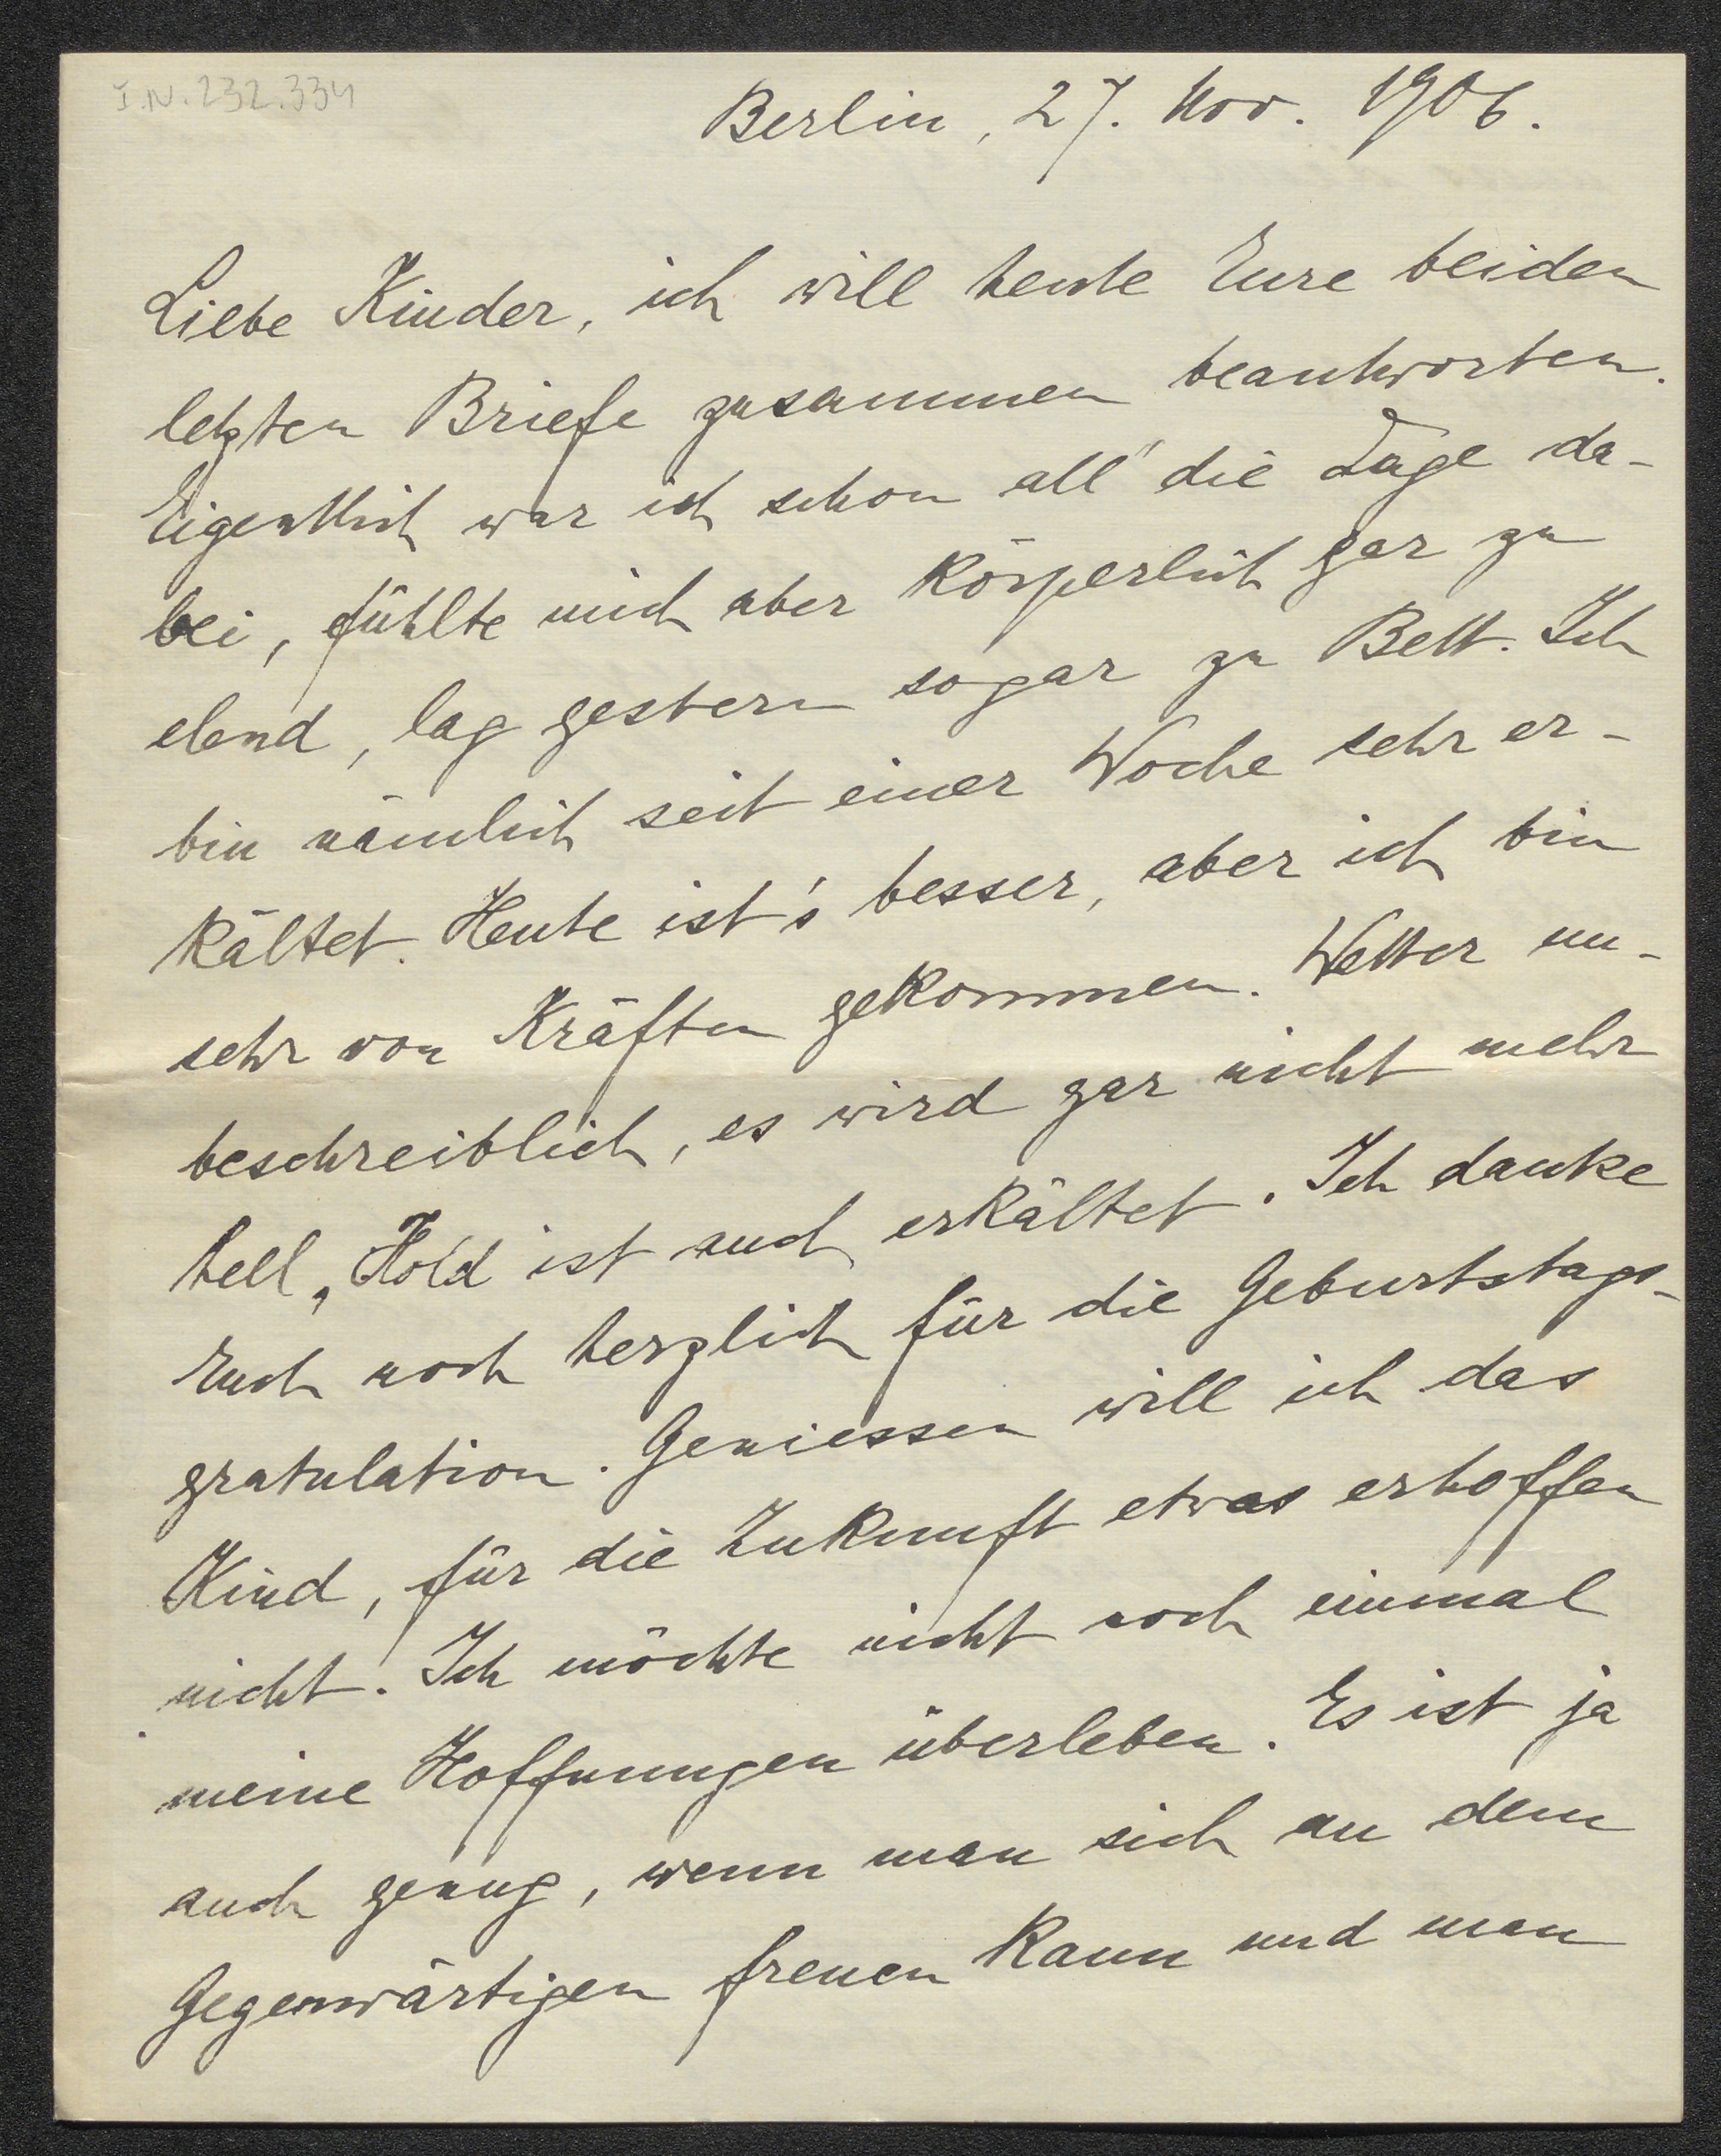 I.N. 232.334
Berlin, 27. Nov. 1906.
Liebe Kinder, ich will heute Eure beiden
letzten Briefe zusammen beantworten.
Eigentlich war ich schon all' die Tage da-
bei, fühlte mich aber körperlich gar zu
elend, lag gestern sogar zu Bett. Ich
bin nämlich seit einer Woche sehr er-
kältet. Heute ist's besser, aber ich bin
sehr von Kräften gekommen. Wetter un-
beschreiblich, es wird gar nicht mehr
hell, Hold ist auch erkältet. Ich danke
Euch noch herzlich für die Geburtstags-
gratulation. Geniessen will ich das
Kind, für die Zukunft etwas erhoffen
nicht. Ich möchte nicht noch einmal
meine Hoffnungen überleben. Es ist ja
auch genug, wenn man sich an dem
Gegenwärtigen freuen kann und man